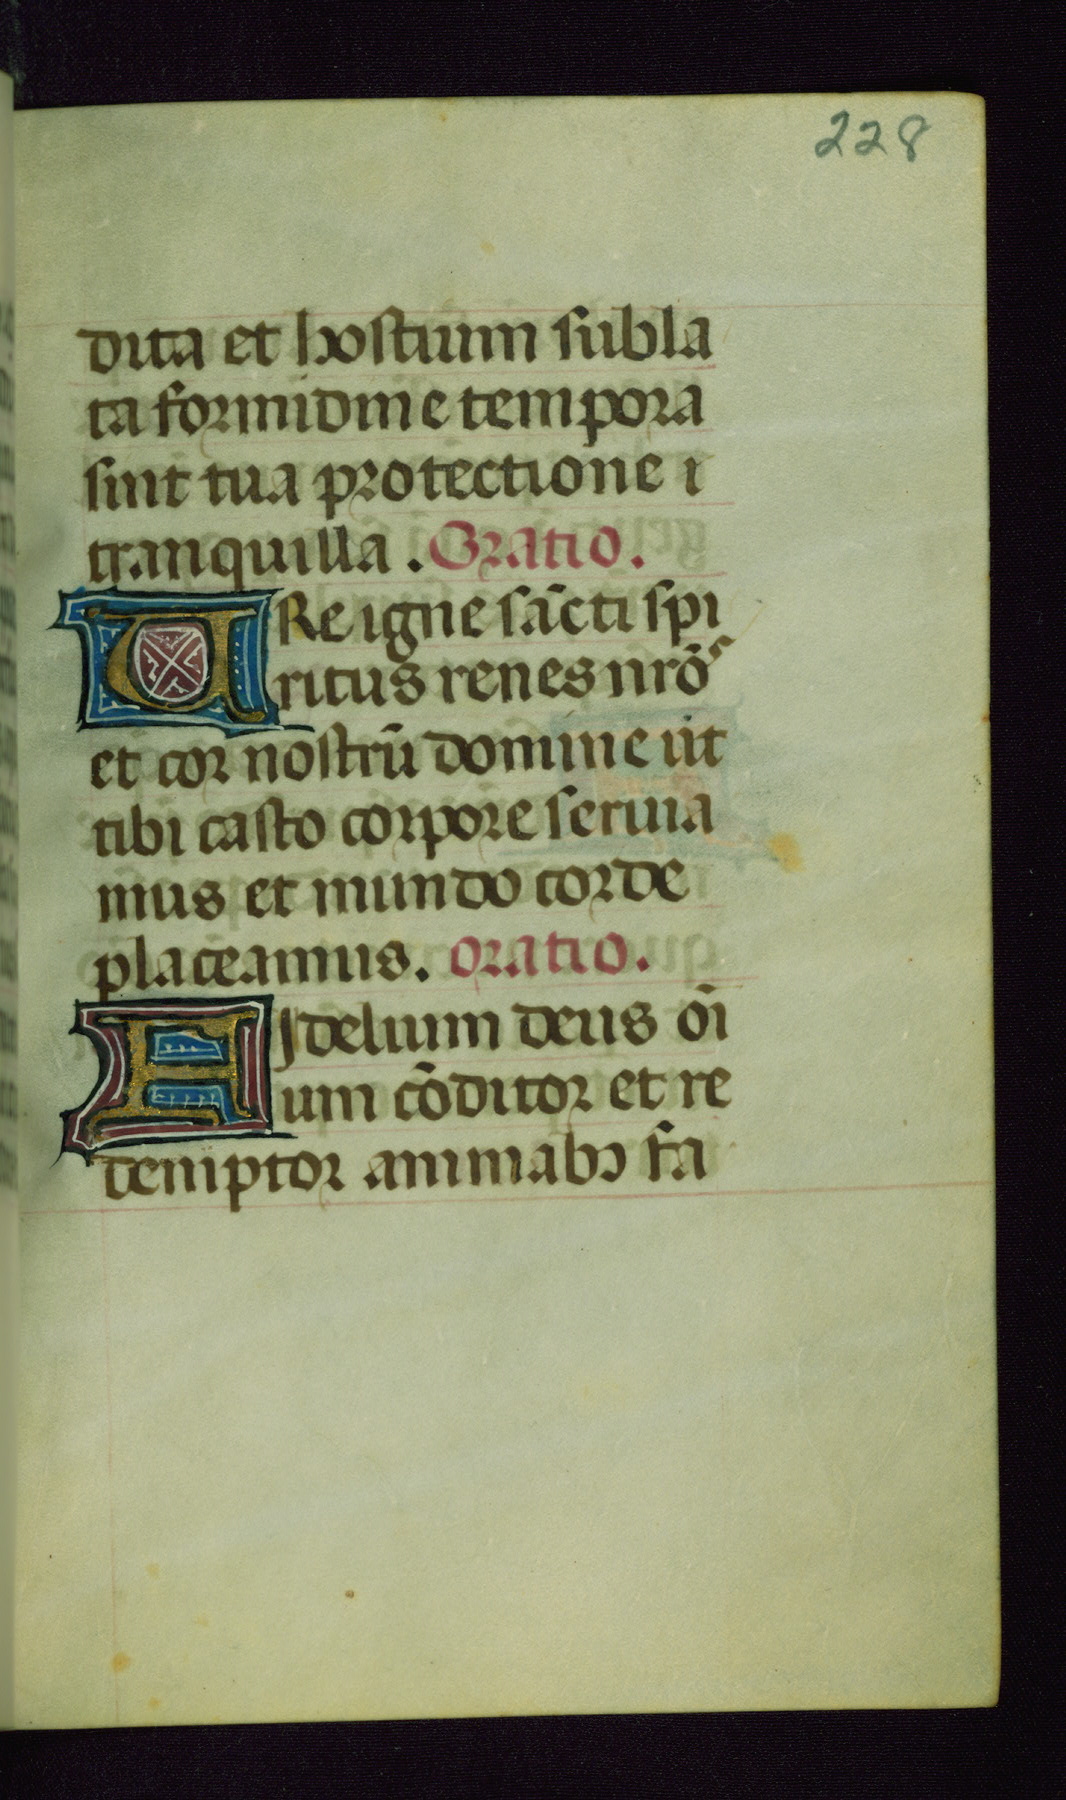 228
dita et hostium subla
ta formidine tempora
sint tua protectione i
tranquilla. Oratio.
URe igne sācti spi
ritus renes nrōs
et cor nostrū domine ut
tibi casto corpore seruia
mus et mundo corde
placeamus. oratio.
FIdelium deus oī
um cōditor et re
demptor animabꝫ fa